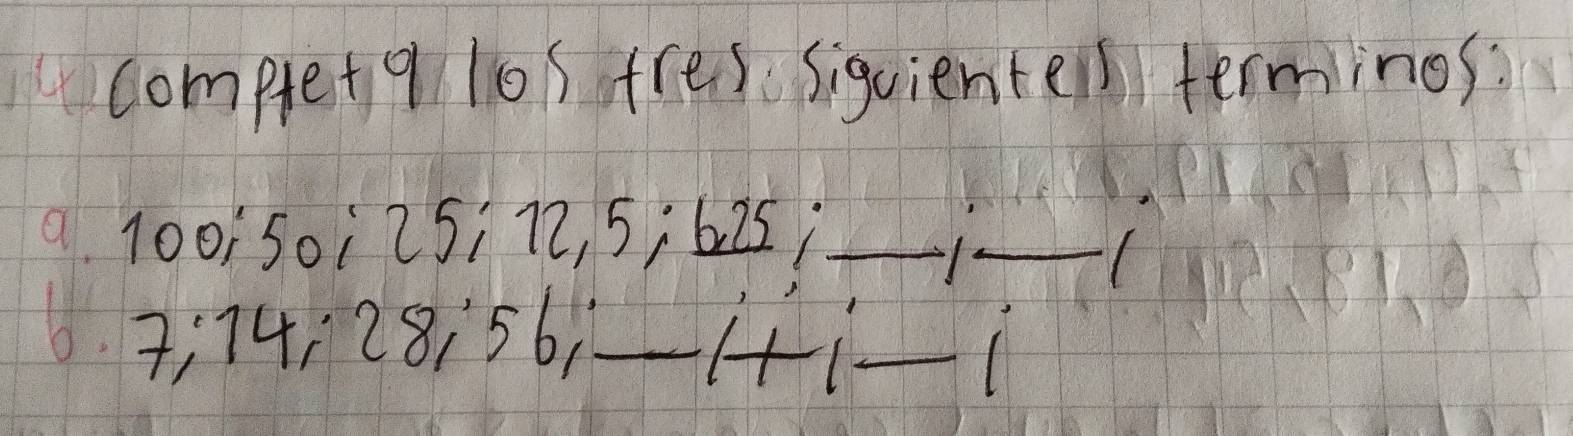 4 completa los tres siguientes terminos:
a. 100; 50; 25; 12,5; 6,25; ___; ___;
b. 7; 14; 28; 56; ___; ___; ___;